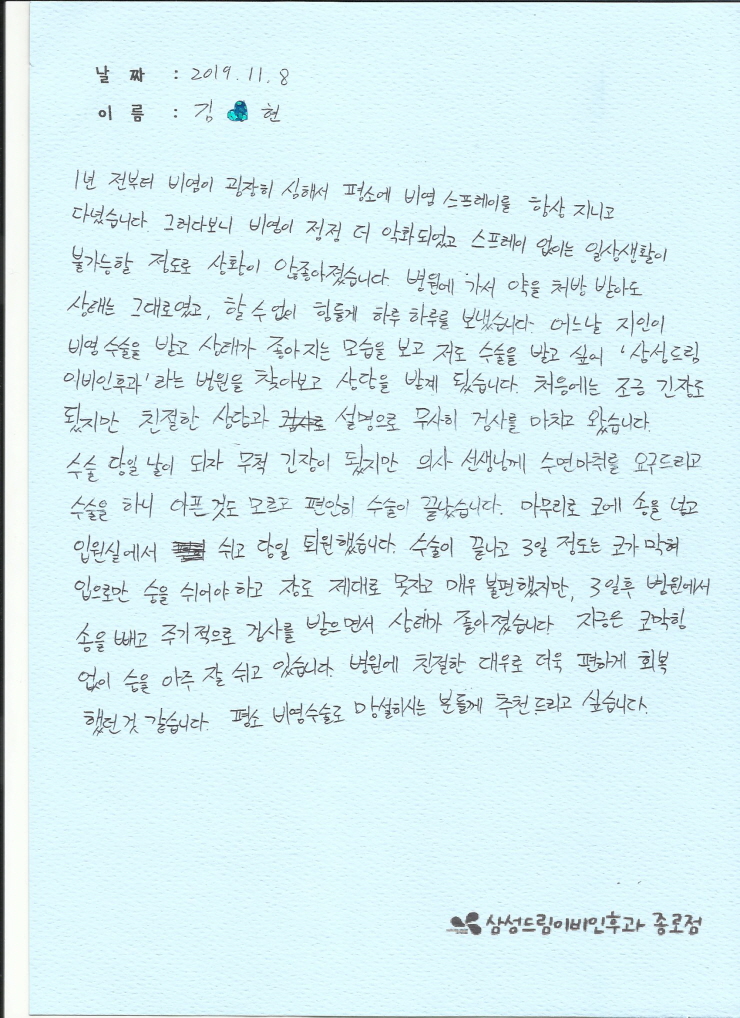 날 짜 : 2019. 11. 8
이 름 : 김 현
1년 전부터 비염이 굉장히 심해서 평소에 비염 스프레이를 항상 지니고
다녔습니다. 그러다보니 비염이 점점 더 악화되었고 스프레이 없이는 일상생활이
불가능할 정도로 상황이 안좋아졌습니다. 병원에 가서 약을 처방 받아도
상태는 그대로였고, 할 수 없이 힘들게 하루 하루를 보냈습니다. 어느날 지인이
비염 수술을 받고 상태가 좋아지는 모습을 보고 저도 수술을 받고 싶어 '삼성드림
이비인후과'라는 병원을 찾아보고 상담을 받게 됐습니다. 처음에는 조금 긴장도
됐지만 친절한 상담과 설명으로 무사히 검사를 마치고 왔습니다.
수술 당일 날이 되자 무척 긴장이 됐지만 의사 선생님께 수면마취를 요구드리고
수술을 하니 아픈것도 모르고 편안히 수술이 끝났습니다. 마무리로 코에 솜을 넣고
입원실에서 쉬고 당일 퇴원했습니다. 수술이 끝나고 3일 정도는 코가 막혀
입으로만 숨을 쉬어야 하고 잠도 제대로 못자고 매우 불편했지만, 3일후 병원에서
솜을 빼고 주기적으로 검사를 받으면서 상태가 좋아졌습니다. 지금은 코막힘
없이 숨을 아주 잘 쉬고 있습니다. 병원에 친절한 대우로 더욱 편하게 회복
했던것 같습니다. 평소 비염수술로 망설하시는 분들께 추천드리고 싶습니다.
삼성드림이비인후과 종로점